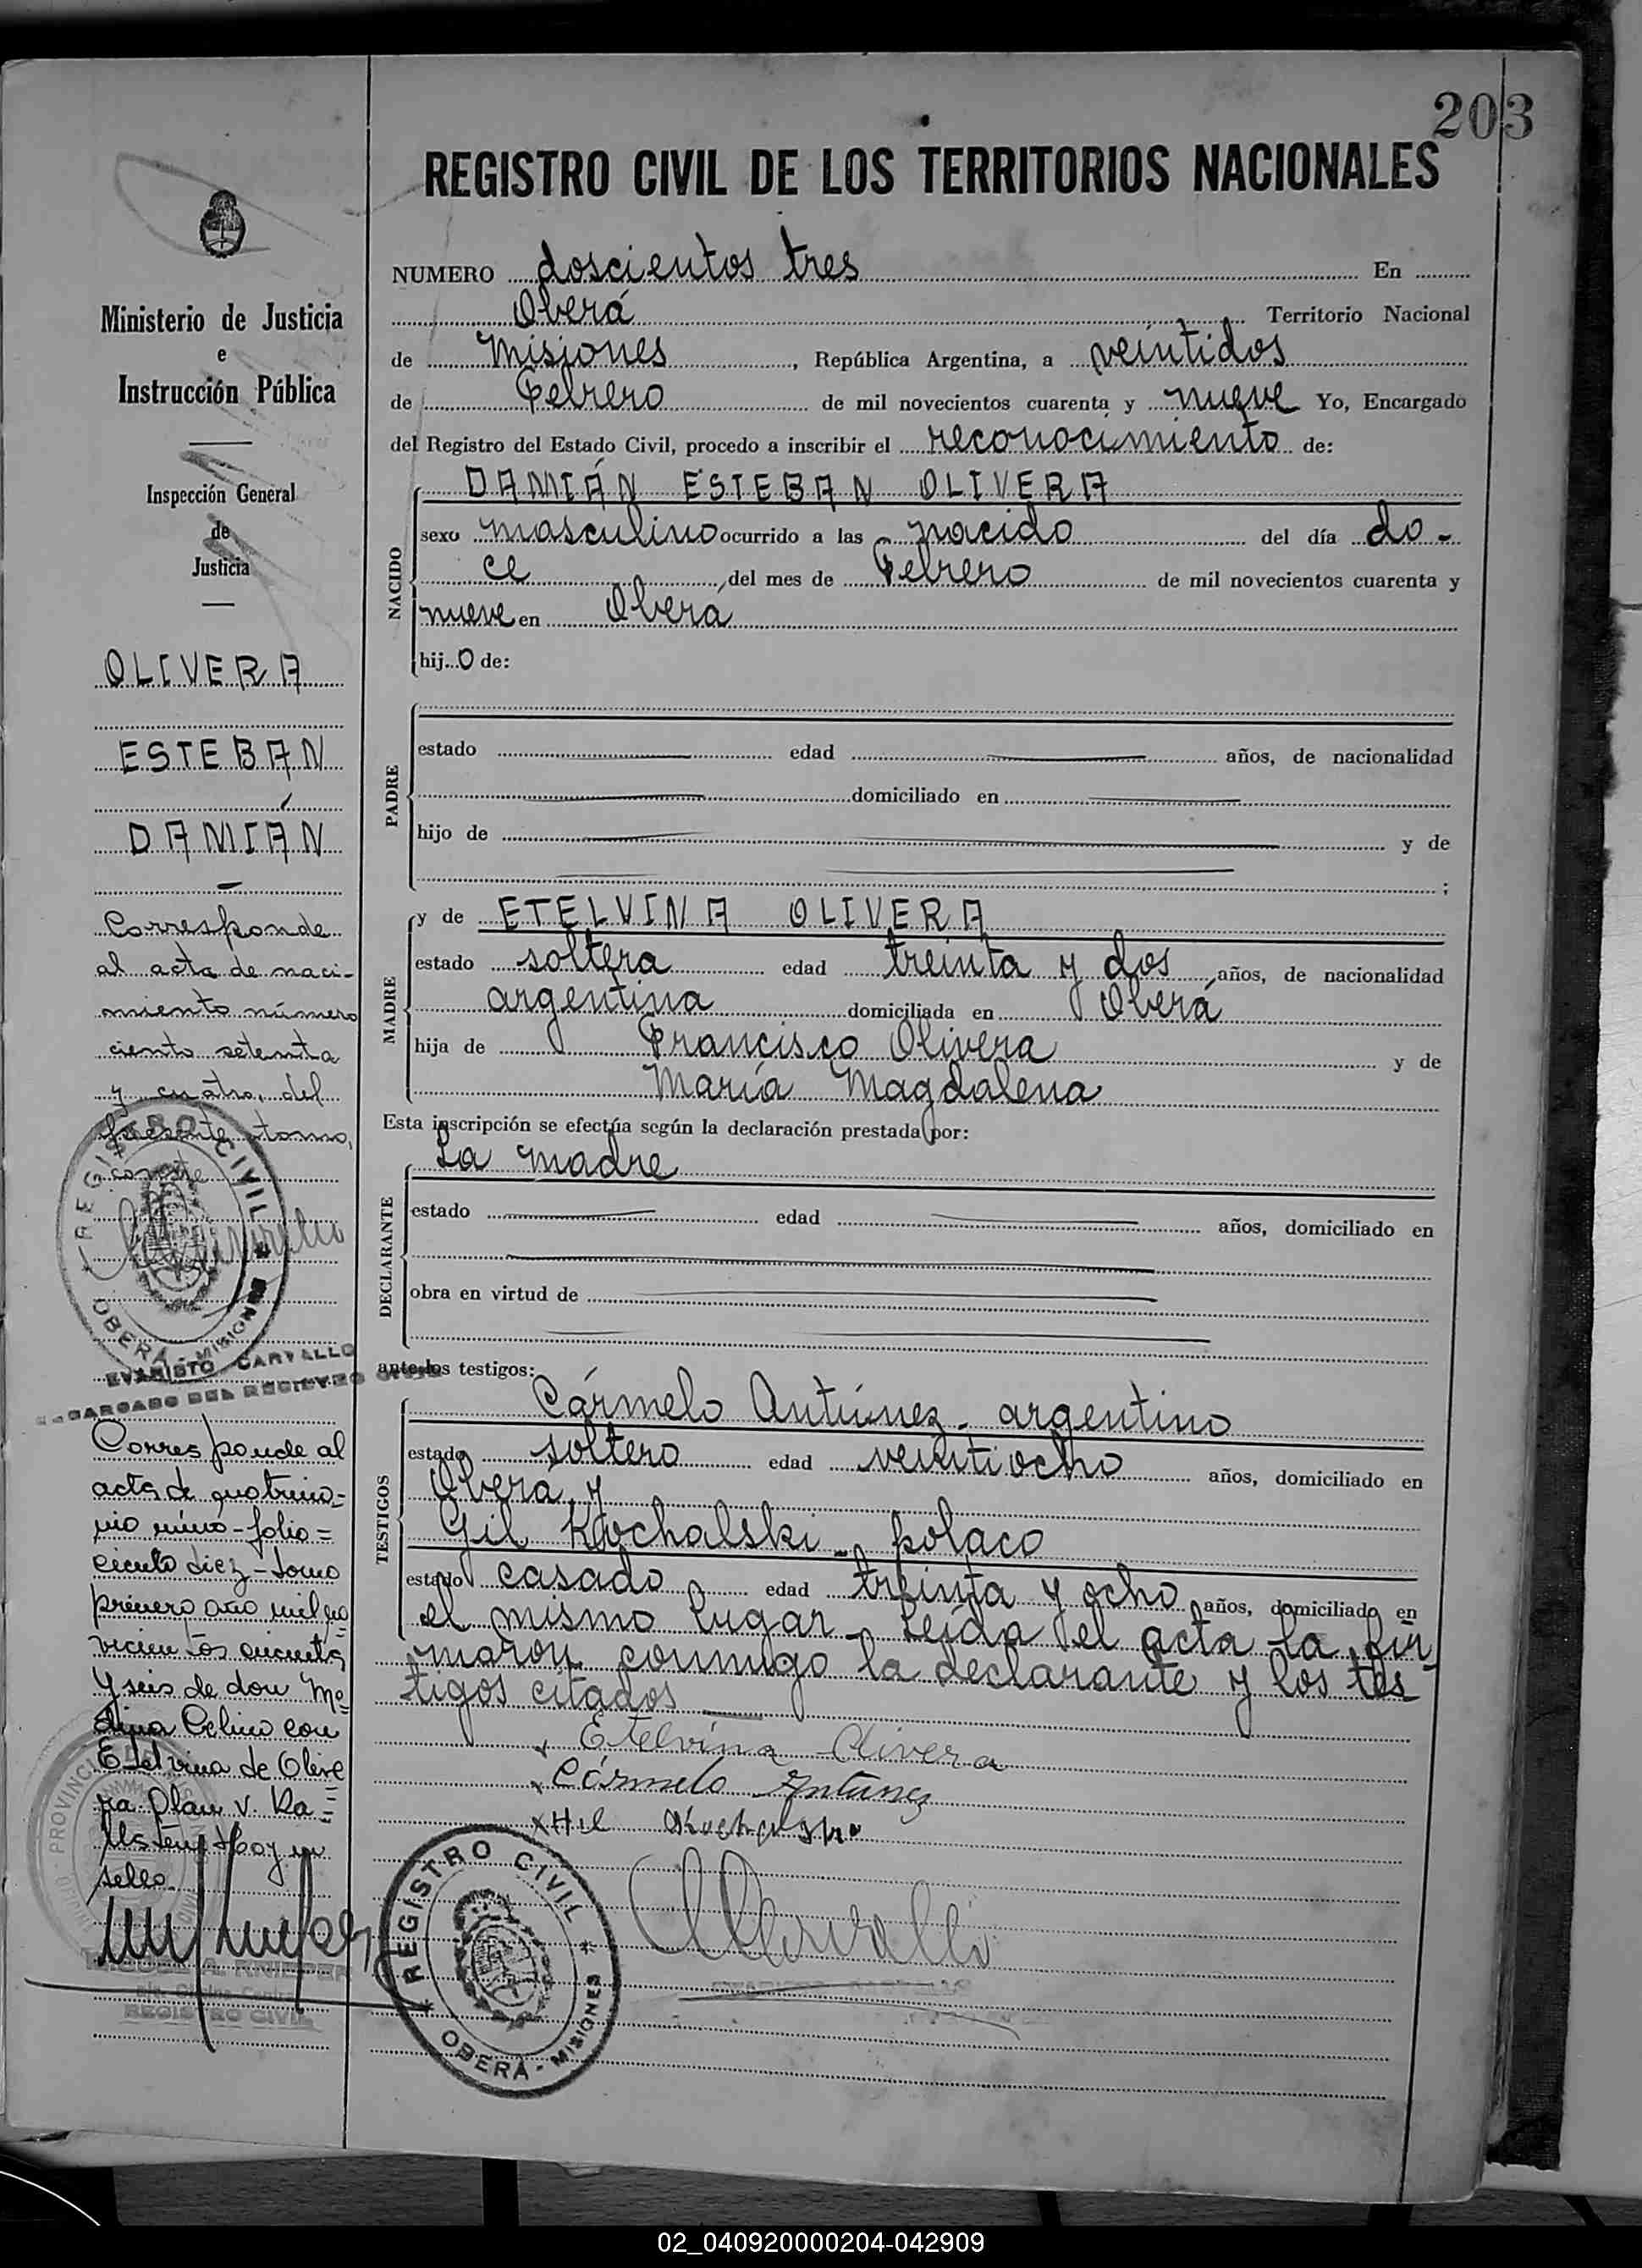 203
REGISTRO CIVIL DE LOS TERRITORIOS NACIONALES
NUMERO doscientos tres En
Oberá Territorio Nacional
de Misiones, República Argentina, a veintidos
de Febrero de mil novecientos cuarenta y nueve Yo, Encargado
del Registro del Estado Civil, procedo a inscribir el reconocimiento de:
NACIDO
DAMIÁN ESTEBAN OLIVERA
sexo masculino ocurrido a las nacido del día do-
ce del mes de Febrero de mil novecientos cuarenta y
nueve en Oberá
hijo de:
PADRE
estado edad años, de nacionalidad
domiciliado en
hijo de y de
;
MADRE
y de ETELVINA OLIVERA
estado soltera edad treinta y dos años, de nacionalidad
argentina domiciliada en Oberá
hija de Francisco Olivera y de
María Magdalena
Esta inscripción se efectúa según la declaración prestada por:
DECLARANTE
La madre
estado edad años, domiciliado en
obra en virtud de
ante los testigos:
TESTIGOS
Cármelo Antúnez - argentino
estado soltero edad veintiocho años, domiciliado en
Oberá y
Gil Kochalski - polaco
estado casado edad treinta y ocho años, domiciliado en
el mismo lugar - Leída el acta la fir
maron conmigo la declarante y los tes
tigos citados
Etelvina Olivera
Cármelo Antunez
REGISTRO CIVIL
OBERÁ - MISIONES
Ministerio de Justicia
e
Instrucción Pública
Inspección General
de
Justicia
OLIVERA
ESTEBAN
DAMIÁN
Corresponde
al acta de naci-
miento número
ciento setenta
y cuatro, del
presente tomo,
conste
REGISTRO CIVIL
OBERÁ - MISIONES
EVARISTO CARVALLO
ENCARGADO DEL REGISTRO CIVIL
Corresponde al
acta de matrimo-
nio - folio =
ciento diez - tomo
primero año mil no
vecientos cincuenta
y seis de don Me
dina Celino con
Etelvina de Olive
ra
Hoy
sello.
PROVINCIA
REGISTRO CIVIL
02_040920000204-042909